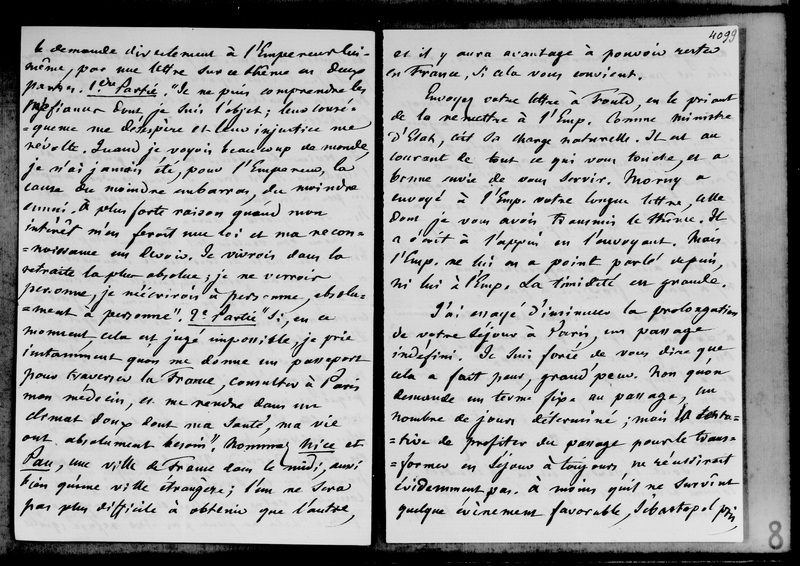 le demande directement à l'Empereur lui-
même, par une lettre sur ce thème en deux
parties. 1ère Partie. "Je ne puis comprendre les
méfiances dont je suis l'objet; leur consé-
-quence me désespère et leur injustice me
révolte. Quand je voyois beaucoup de monde,
je n'ai jamais été, pour l'Empereur, la
cause du moindre embarras, du moindre
ennui. À plus forte raison quand mon
intérêt m'en feroit une loi et ma recon-
-noissance un devoir. Je vivrois dans la
retraite la plus absolue; je ne verrois
personne, je n'écrirois à personne, absolu-
-ment à personne". 2e Partie "Si, en ce
moment, cela est jugé impossible, je prie
instamment qu'on me donne un passeport
pour traverser la France, consulter à Paris
mon médecin, et me rendre dans un
climat doux dont ma santé, ma vie
ont absolument besoin". Nommez Nice et
Pau, une ville de France dans le midi, aussi
bien qu'une ville étrangère; l'un ne sera
pas plus difficile à obtenir que l'autre,
4099
et il y aura avantage à pouvoir rester
en France, si cela vous convient.
Envoyez votre lettre à Fould, en le priant
de la remettre à l'Emp. Comme ministre
d'Etat, c'est sa charge naturelle. Il est au
courant de tout ce qui vous touche, et a
bonne envie de vous servir. Morny a
envoyé à l'Emp. votre longue lettre, celle
dont je vous avois transmis le thème. Il
a écrit à l'appui en l'envoyant. Mais
l'Emp. ne lui en a point parlé depuis,
ni lui à l'Emp. La timidité est grande.
J'ai essayé d'insinuer la prolongation
de votre séjour à Paris, un passage
indéfini. Je suis forcé de vous dire que
cela a fait peur, grand'peur. Non qu'on
demande un terme fixe au passage, un
nombre de jours déterminé; mais la tenta-
-tive de profiter du passage pour le trans-
-former en séjour à toujours ne réussiroit
évidemment pas. À moins qu'il ne survint
quelque évènement favorable, Sébastopol pris,
8